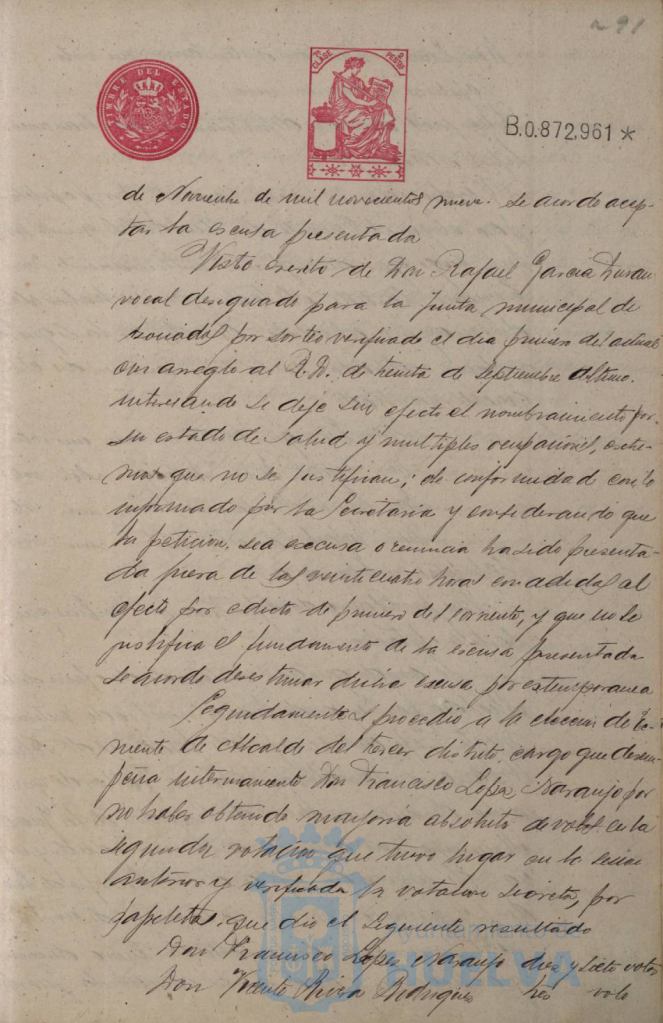 291
TIMBRE DEL ESTADO
7ª CLASE 2 PESETAS
B.0.872,961 *
de Noviembre de mil novecientos nueve. Se acordó acep-
tar la escusa presentada
Visto escrito de Don Rafael Garcia Duran
vocal designado para la Junta municipal de
Asociados por sorteo verificado el dia primero del actual
con arreglo al R.D. de treinta de Septiembre último.
interesando se deje sin efecto el nombramiento por
su estado de salud y multiples ocupaciones, extre-
mos que no se justifican; de conformidad con lo
informado por la Secretaria y considerando que
la peticion, sea escusa o renuncia ha sido presenta-
da fuera de las veinticuatro horas concedidas al
efecto por edicto de primero del corriente, y que no se
justifica el fundamento de la escusa presentada
se acordó desestimar dicha escusa por estemporanea
Seguidamente se procedió a la eleccion de Te-
niente de Alcalde del tercer distrito, cargo que desem-
peña interinamente Don Francisco Lopez Naranjo por
no haber obtenido mayoria absoluta de votos en la
segunda votacion que tuvo lugar en la sesion
anterior y verificada la votacion secreta, por
papeletas, que dió el siguiente resultado
Don Francisco Lopez Naranjo diez y siete votos
Don Vicente Rivera Rodriguez tres voto
Ayuntamiento de
HUELVA